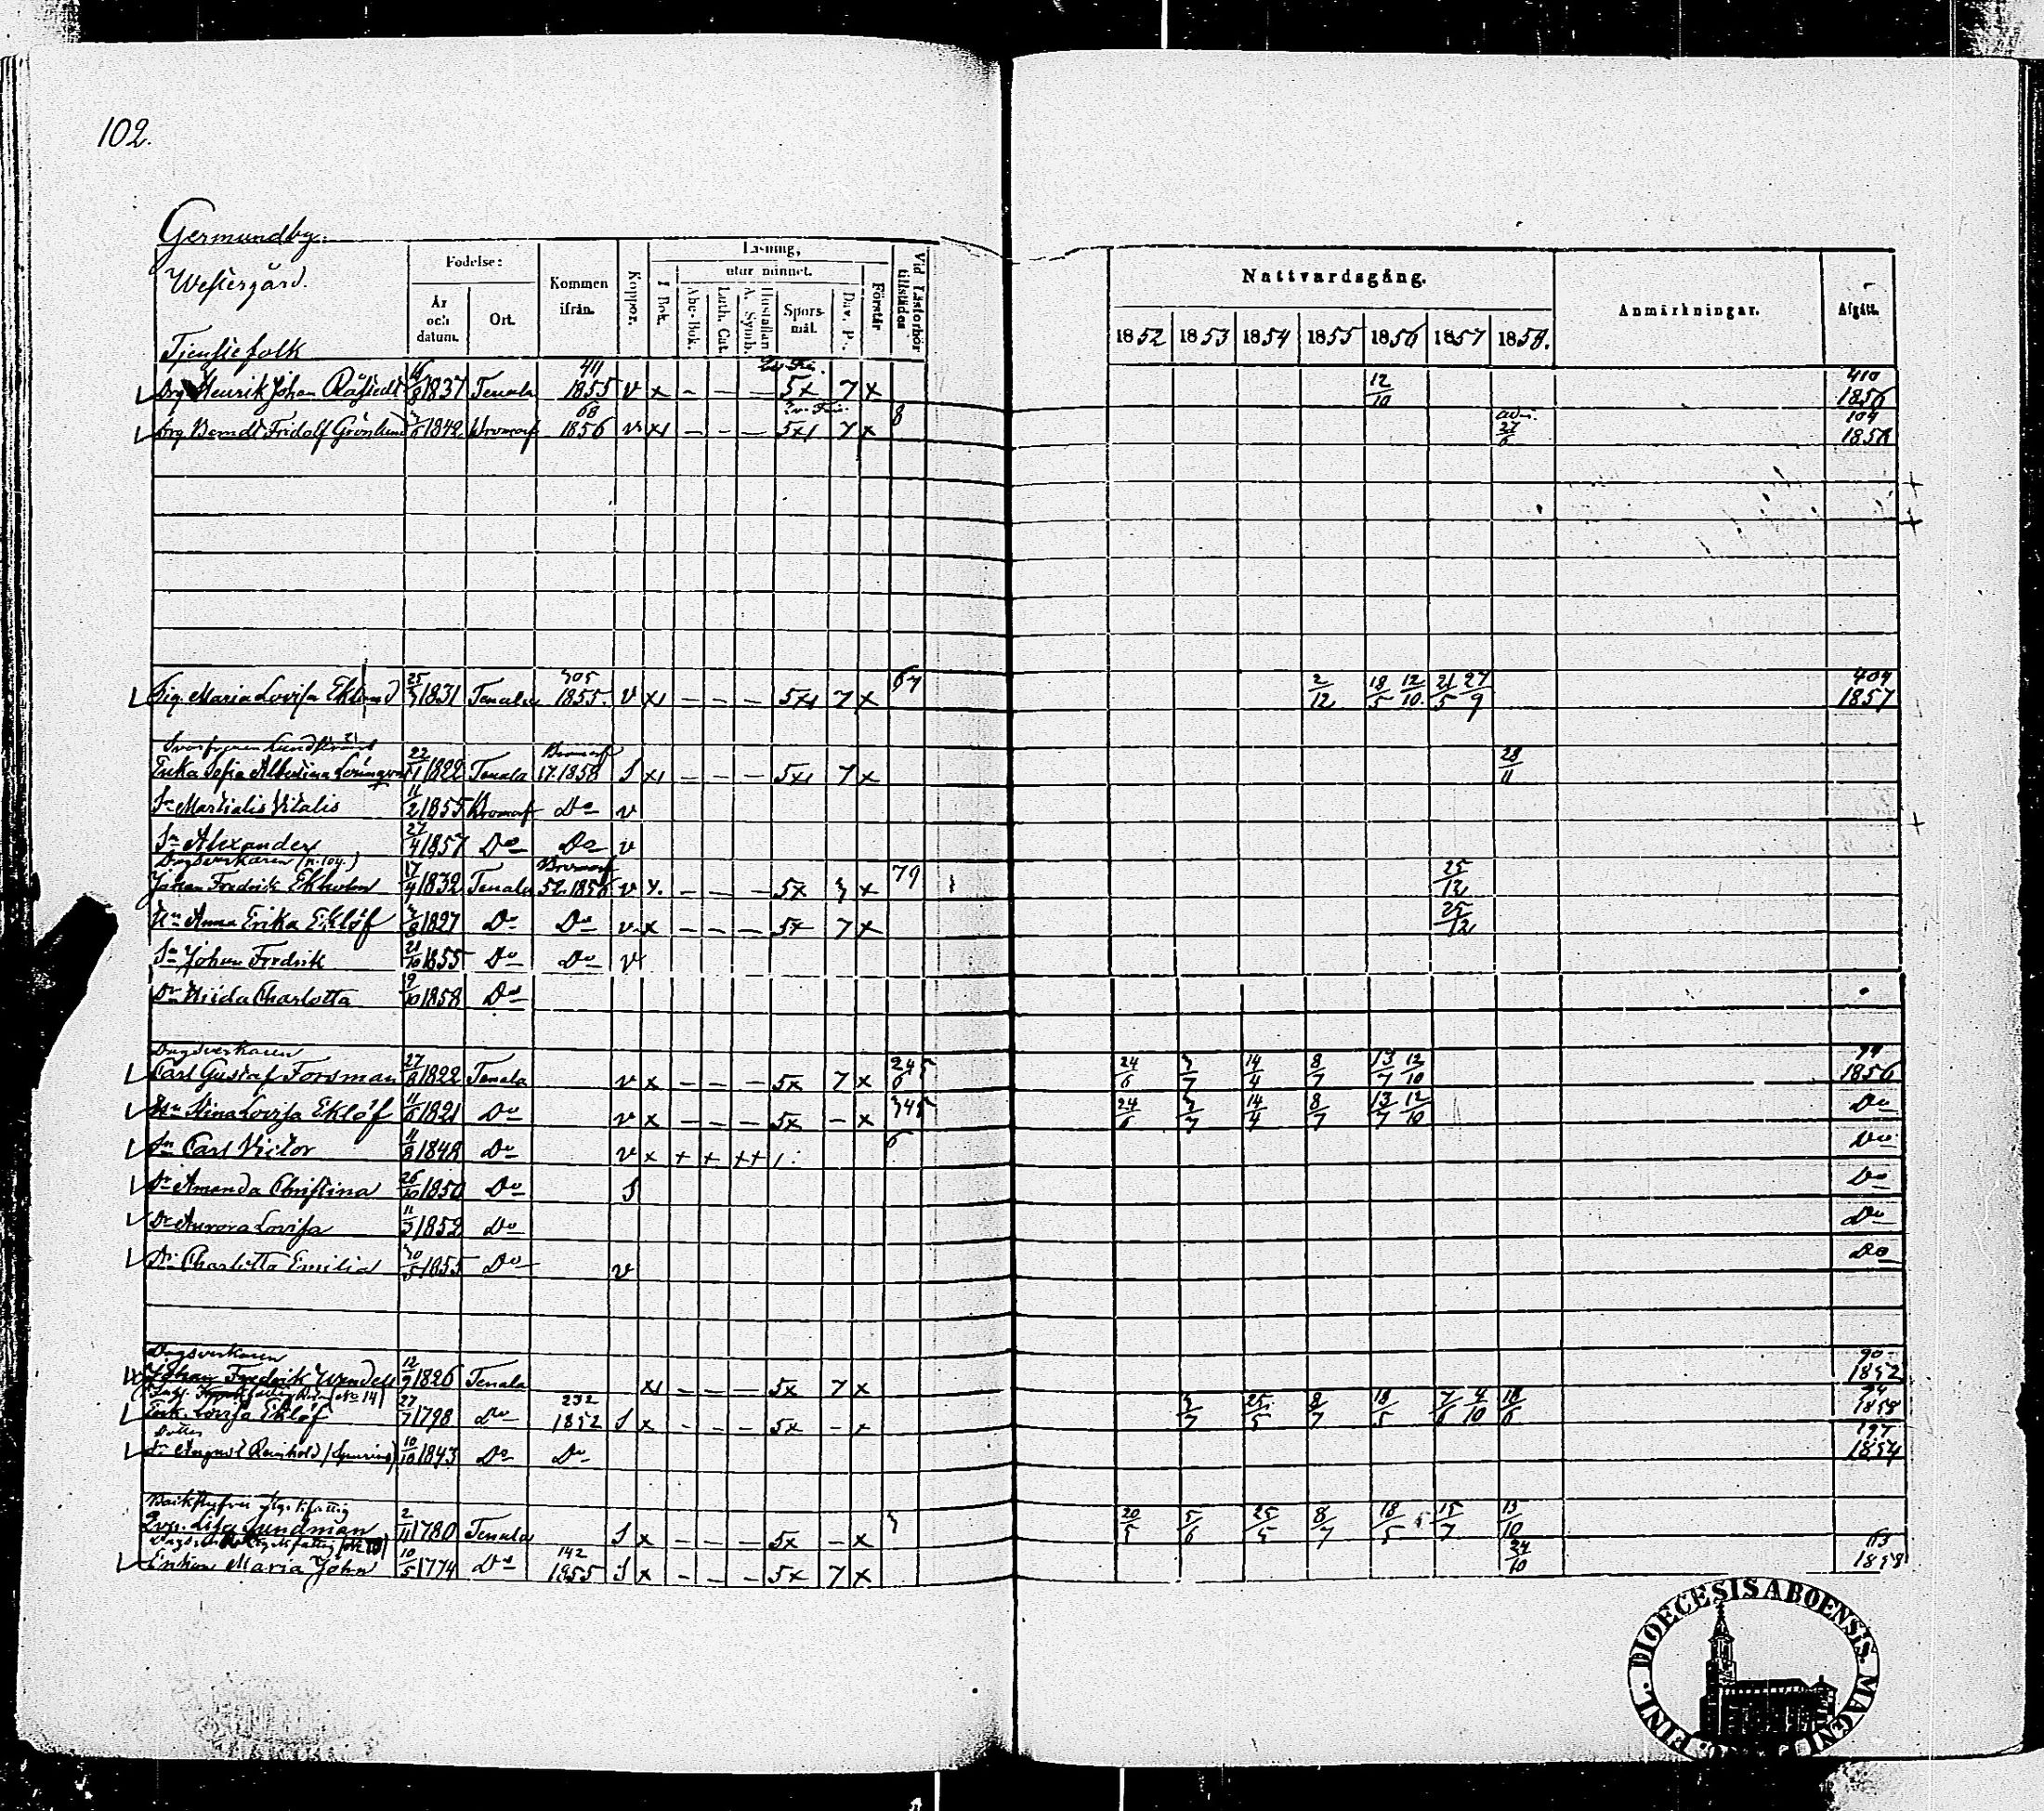 102.
Germundby.
Westergård.
Tjenstefolk
Födelse:
År och datum.
Ort.
Kommen ifrån.
Koppor.
Läsning,
I Bok.
utur minnet.
Abc-Bok.
Luth. Cat.
Hustaflan A. Symb.
Spörsmål.
Dav. P.
Förstår
Vid Läsförhör tillstädes
Nattvardsgång.
1852 1853 1854 1855 1856 1857 1858.
Anmärkningar.
Afgått.
Drg Henrik Johan 1837 Tenala 1855 v x - - - 5x 7 x 12/10 410 1856
Drg Berndt Fridolf Grönlund 1842 Bromarf 68 1856 v x - - - 5x 7 x 8 27/6 104 1858
Pig. Maria Lovisa Eklund 25/3 1831 Tenala 305 1855. v x - - - 5x 7 x 67 2/12 18/5 12/10. 21/5 27/9 404 1857
Erika Sofia Albertina 22/11 1822 Tenala Bromarf 17. 1858 S x - - - 5x 7 x 28/11
Sn Martialis Vitalis 11/2 1855 Bromarf Do v
Sn Alexander 27/4 1857 Do Do v
Dagsverkaren (n. 104.)
Johan Fredrik Ekholm 17/4 1832 Tenala Bromarf 52. 1856 v x. - - - 5x 7 x 79 25/12
Hn Anna Erika Eklöf 1827 Do Do v x - - - 5x 7 x 25/12
Sn Johan Fredrik 21/10 1855 Do Do v
Dr Charlotta 19/10 1858 Do
Dagsverkaren
Carl Gustaf Forsman 27/8 1822 Tenala v x - - - 5x 7 x 24/6 3/7 14/4 8/7 13/7 12/10 1856
Hn Stina Lovisa Eklöf 11/6 1821 Do v x - - - 5x - x 345 24/6 3/7 14/4 8/7 13/7 12/10 Do
Sn Carl Victor 11/8 1848 Do v x + + ++ 6 Do
Dr Amanda Christina 26/10 1850 Do S Do
Dr Aurora Lovisa 11/3 1852 Do Do
Dr Charlotta Emilia 30/5 1855 Do v Do
Dagsverkaren
Johan Fredrik 12/9 1826 Tenala x - - - 5x 7 x 90 1852
Enk. Lovisa Eklöf 27/7 1798 Do 232 1852 S x - - - 5x - x 3/7 25/5 8/7 18/5 7/6 4/10 18/6 1858
Sn August Reinhold 10/10 1843 Do Do 197 1854
Lisa Sundman 2/11 1780 Tenala S x - - - 5x - x 3 20/5 5/6 25/5 8/7 18/5 15/7 13/10
Enkan Maria John 10/5 1774 Do 142 1855 S x - - - 5x 7 x 24/10 63 1858
DIOECESIS ABOENSIS. MAGNI DUC. FINL.